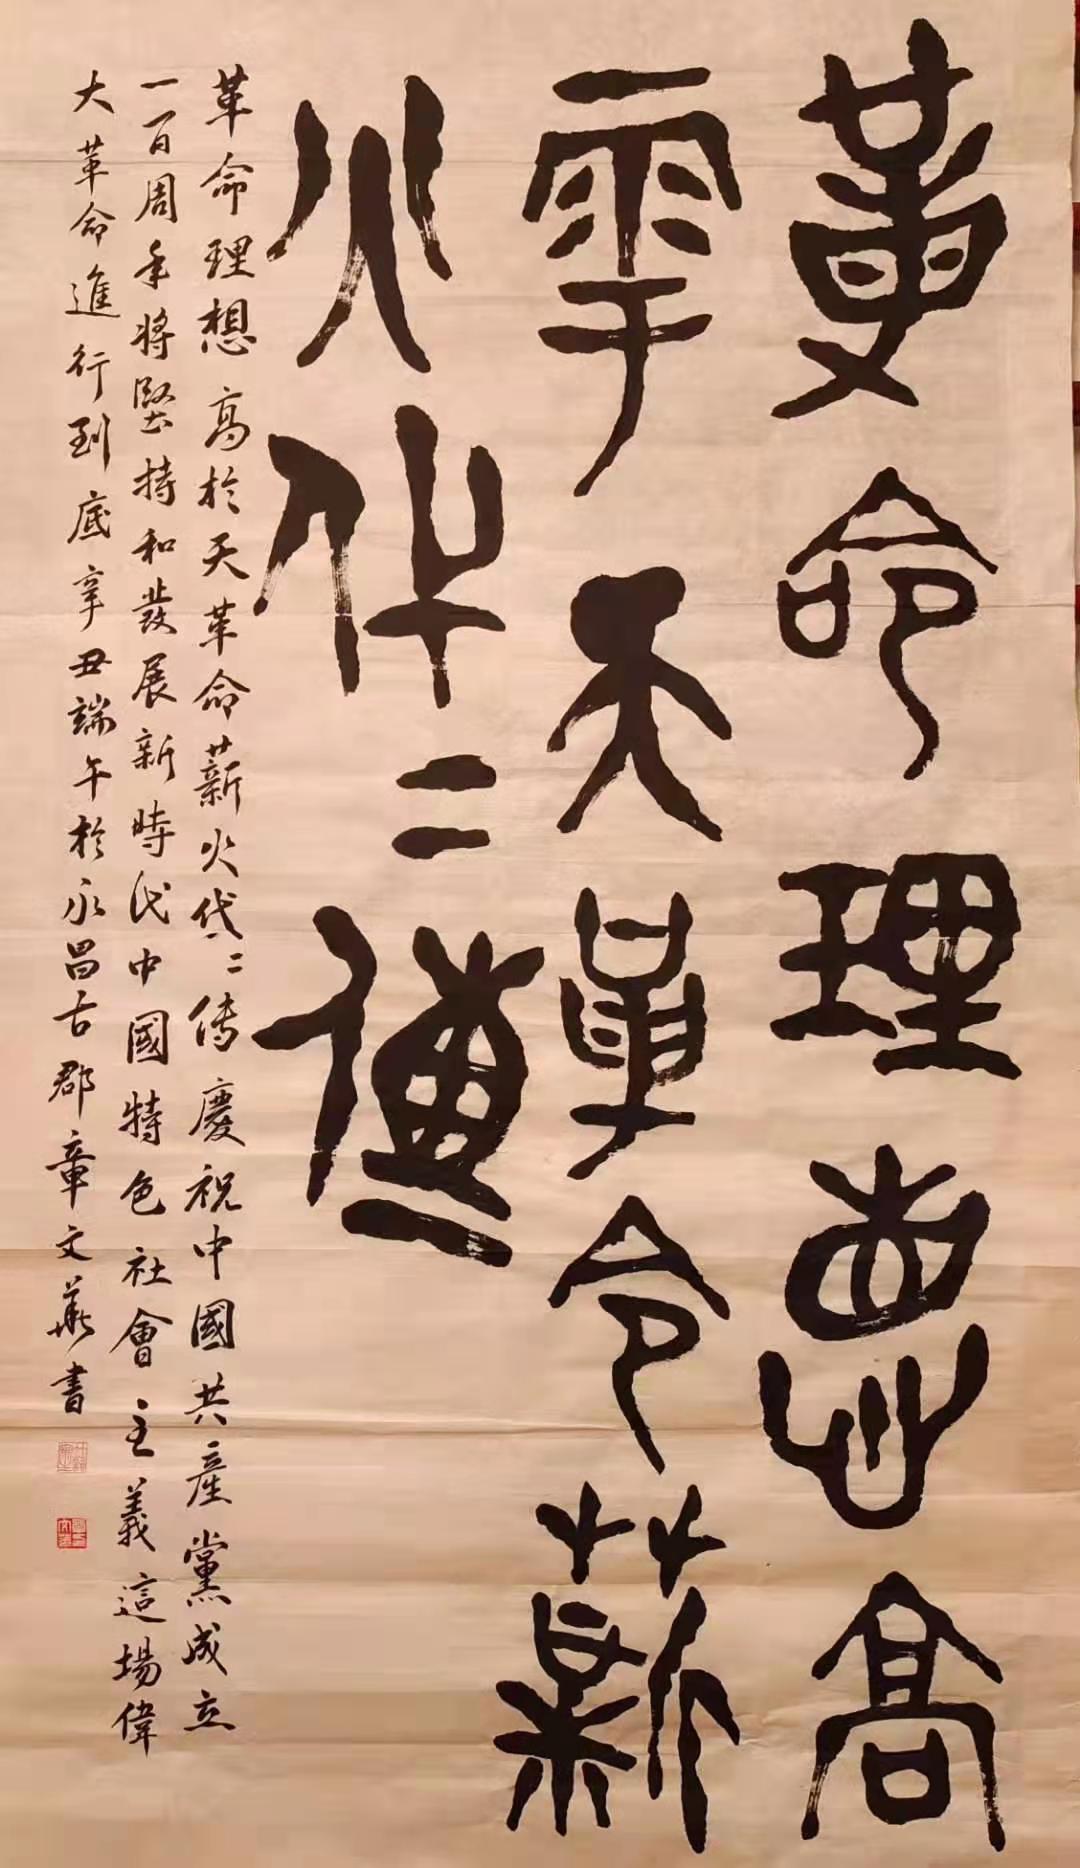 革命理想高
雩天革令薪
火代二傳
革命理想高於天革命薪火代二傳慶祝中國共產黨成立
一百周年將堅持和發展新時代中國特色社會主義這場偉
大革命進行到底辛丑端午於永昌古郡章文華書